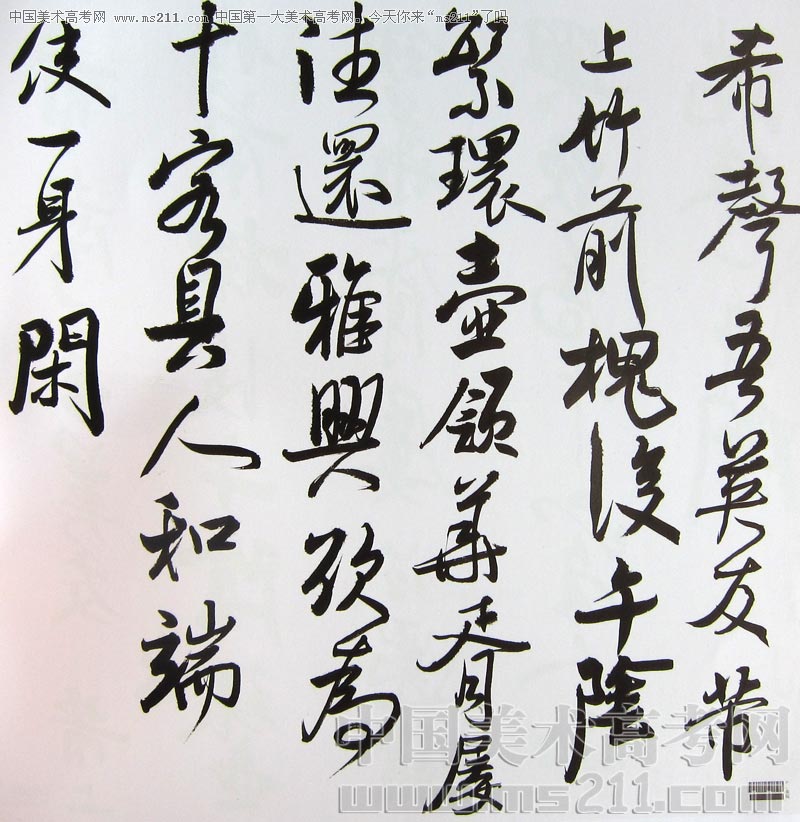 中国美术高考网 www.ms211.com 中国第一大美术高考网。今天你来“ms211”了吗
希聲吾英友芾
上竹前槐後午陰
繁環壺領華胥屢
往還雅興欲為
十客具人和端
使一身閑
中国美术高考网
www.ms211.com